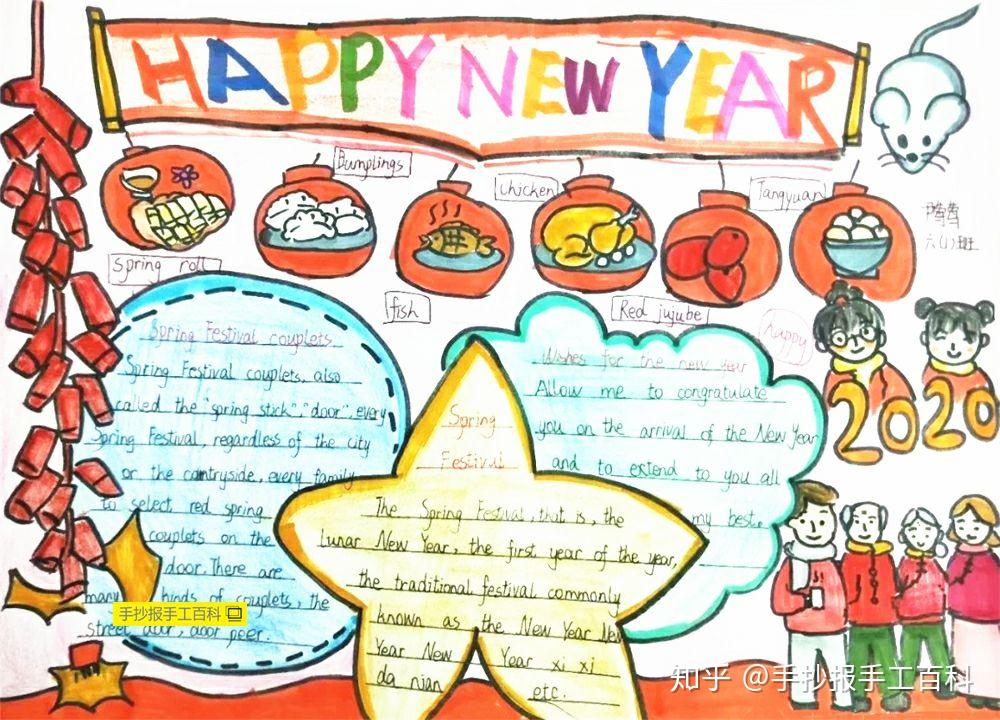 HAPPY NEW YEAR
Bumplings
chicken
Tangyuan
六(1)班
Spring roll
fish
Red jujube
happy
2020
Spring Festival couplets
Spring Festival couplets, also
called the "spring stick", "door", every
Spring Festival, regardless of the city
or the contryside, every family
to select red spring
couplets on the
door. There are
many kinds of couplets, the
street door, door peer.
Spring
Festival
The Spring Festival, that is, the
Lunar New Year, the first year of the year,
the traditional festival commonly
known as the New Year New
Year New Year xi xi
da nian etc.
Wishes for the new year
Allow me to congratulate
you on the arrival of the New Year
and to extend to you all
my best.
手抄报手工百科
知乎 @手抄报手工百科